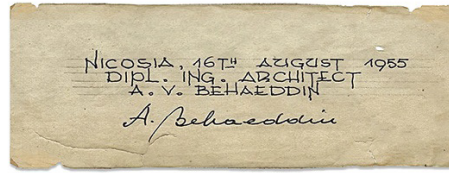 NICOSIA, 16TH AUGUST 1955
DIPL. ING. ARCHITECT
A. V. BEHAEDDIN
A. Behaeddin